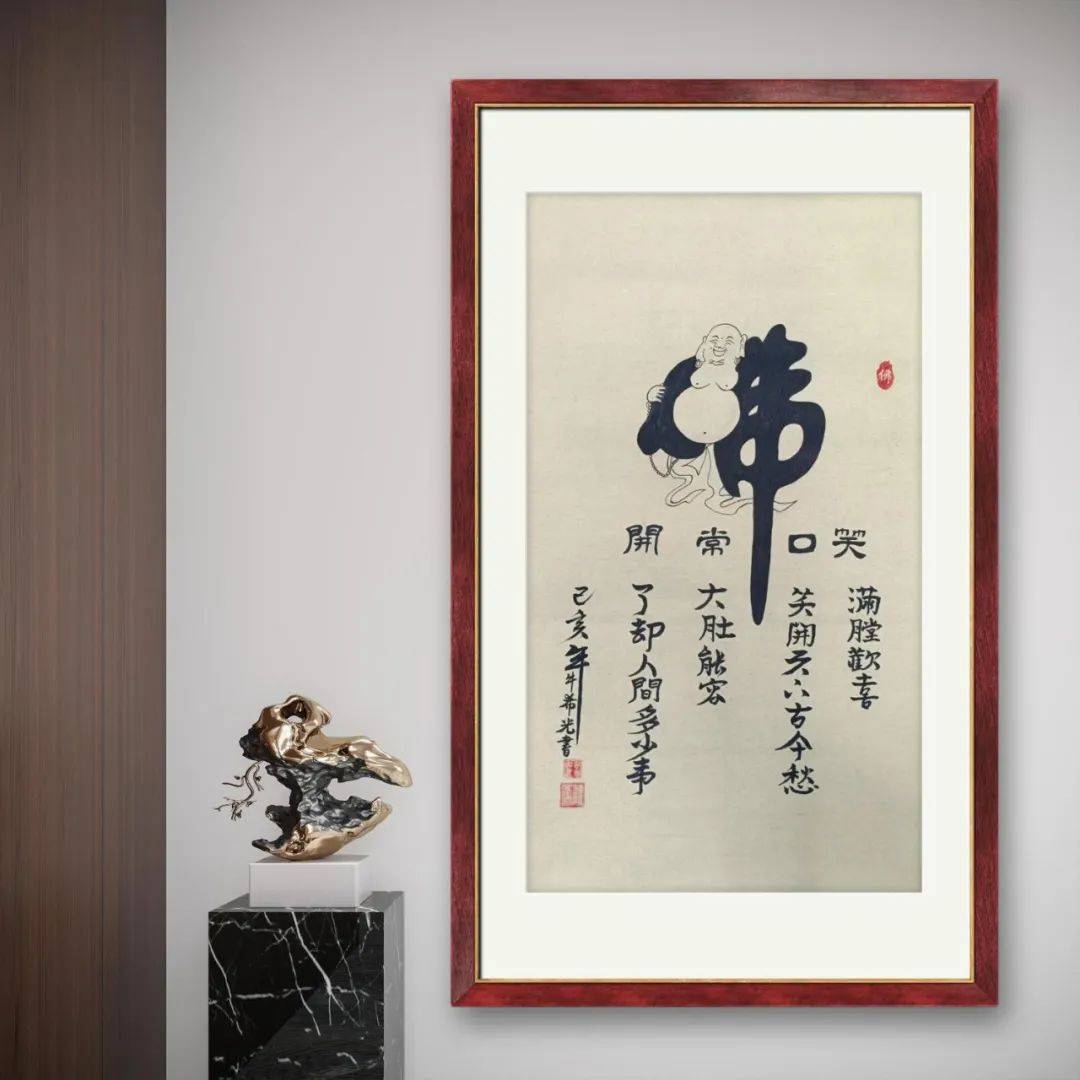 佛
佛
笑口常開
滿膛歡喜
笑開天下古今愁
大肚能容
了却人間多少事
己亥年牛希光書